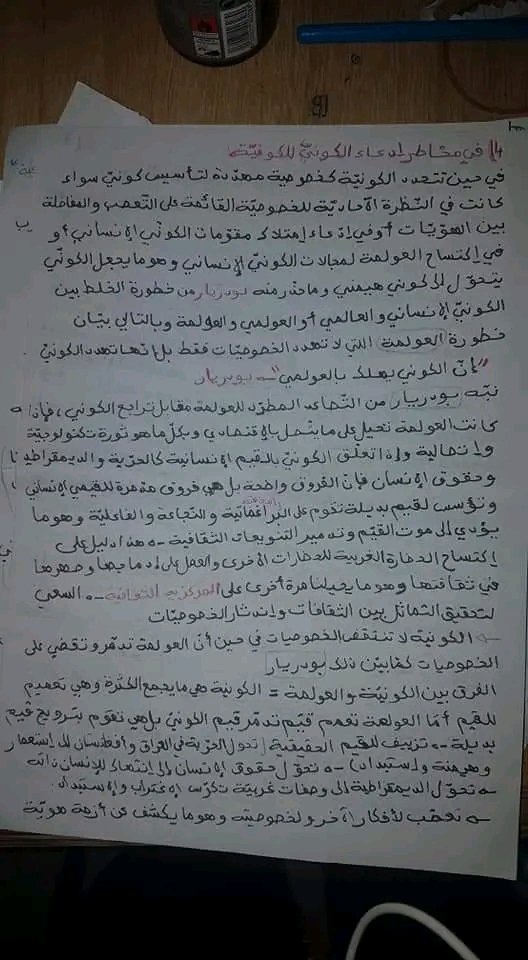 4) في مخاطر إدعاء الكونيّ للكونيّة
في حين تتحدد الكونيّة كخصوصية مهدّدة لتأسيس كونيّ سواء
كانت في النّظرة الأحاديّة للخصوصيّة القائمة على التّعصب والمفاضلة
بين الهويّات أو في إدعاء إمتلاك مقوّمات الكونيّ الإنسانيّ أو
في إكتساح العولمة لمجالات الكونيّ الإنساني وهو ما يجعل الكونيّ
يتحوّل إلى كوني هيمني وما حذّر منه بودريار من خطورة الخلط بين
الكونيّ الإنسانيّ والعالمي أو العولمي والعولمة وبالتالي بيان
خطورة العولمة التي لا تهدد الخصوصيّات فقط بل إنها تهدد الكونيّ
"إنّ الكوني يهلك بالعولمي" ـ بودريار
نبّه بودريار من التّصاعد المطّرد للعولمة مقابل تراجع الكوني، فإذا
كانت العولمة تحيل على ما يتّصل بالإقتصادي وبكلّ ما هو ثورة تكنولوجيّة
وإتصالية وإذا تعلّق الكونيّ بالقيم الإنسانية كالحريّة والديمقراطية
وحقوق الإنسان فإنّ الفروق واضحة بل هي فروق مدمرة للقيمي الإنساني
وتؤسس لقيم بديلة تقوم على البراغماتية والنّجاعة والفاعليّة وهو ما
يؤدي إلى موت القيم وتدمير التنويعات الثقافية ـ هذا دليل على
إكتساح الحضارة الغربية للحضارات الأخرى والعمل على إدماجها وصهرها
في ثقافتها وهو ما يحيلنا مرة أخرى على المركزية الثقافية ـ السعي
لتحقيق التّماثل بين الثقافات وإندثار الخصوصيّات
ـ الكونية لا تنتقف الخصوصيات في حين أنّ العولمة تدمّر وتقضي على
الخصوصيات كما بيّن ذلك بودريار
الفرق بين الكونيّة والعولمة = الكونية هي ما يجمع الكثرة وهي تعميم
للقيم أمّا العولمة تعمم قيم تدمّر قيم الكونيّ بل هي تقوم بترويج قيم
بديلة ـ تزييف للقيم الحقيقية (تحول الحرّية في العراق وأفغانستان إلى إستعمار
وهيمنة وإستبداد) ـ تحوّل حقوق الإنسان إلى إنتهاك للإنسان ذاته
ـ تحوّل الديمقراطية إلى وصفات غربيّة تكرّس الإغتراب والإستبداد.
ـ تعصّب لأفكار الآخر ولخصوصيته وهو ما يكشف عن أزمة هويّة